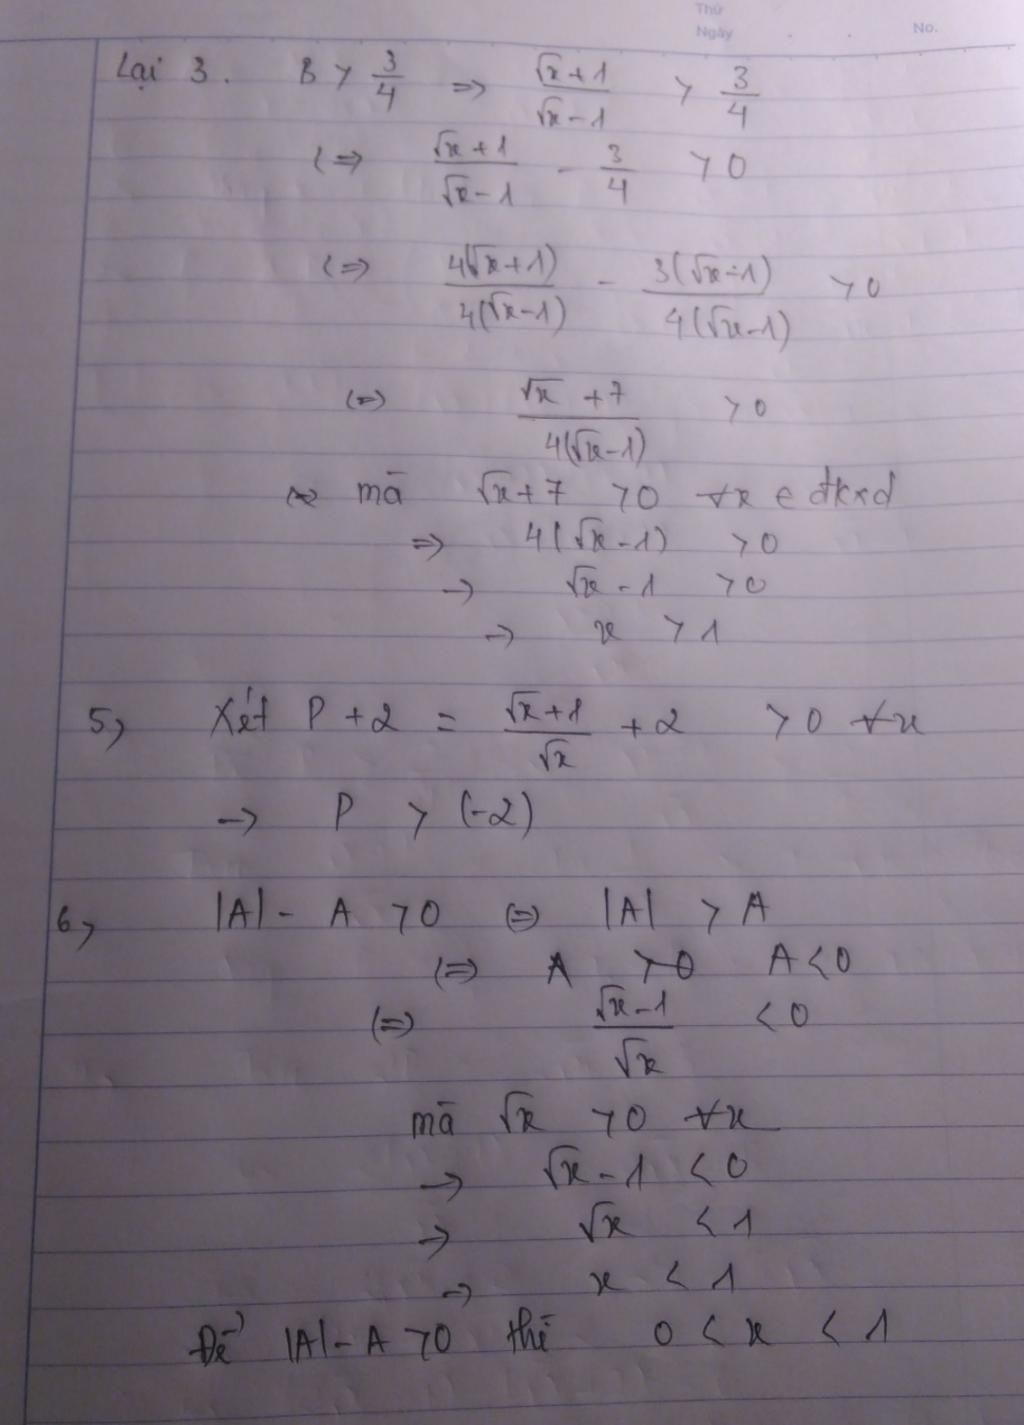 Thứ
Ngày . . No.
Lại 3. B > 3/4 => (√x+1)/(√x-1) > 3/4
(=> (√x+1)/(√x-1) - 3/4 > 0
(=> 4(√x+1)/4(√x-1) - 3(√x-1)/4(√x-1) > 0
(=) (√x+7)/4(√x-1) > 0
mã √x+7 > 0 ∀x ∈ đkxđ
=> 4(√x-1) > 0
→ √x-1 > 0
→ x > 1
5, Xét P+2 = (√x+1)/√x + 2 > 0 ∀x
→ P > (-2)
6, |A| - A > 0 (=) |A| > A
(=> A > 0 A < 0
(=) (√x-1)/√x < 0
mã √x > 0 ∀x
→ √x-1 < 0
→ √x < 1
→ x < 1
Để |A| - A > 0 thì 0 < x < 1